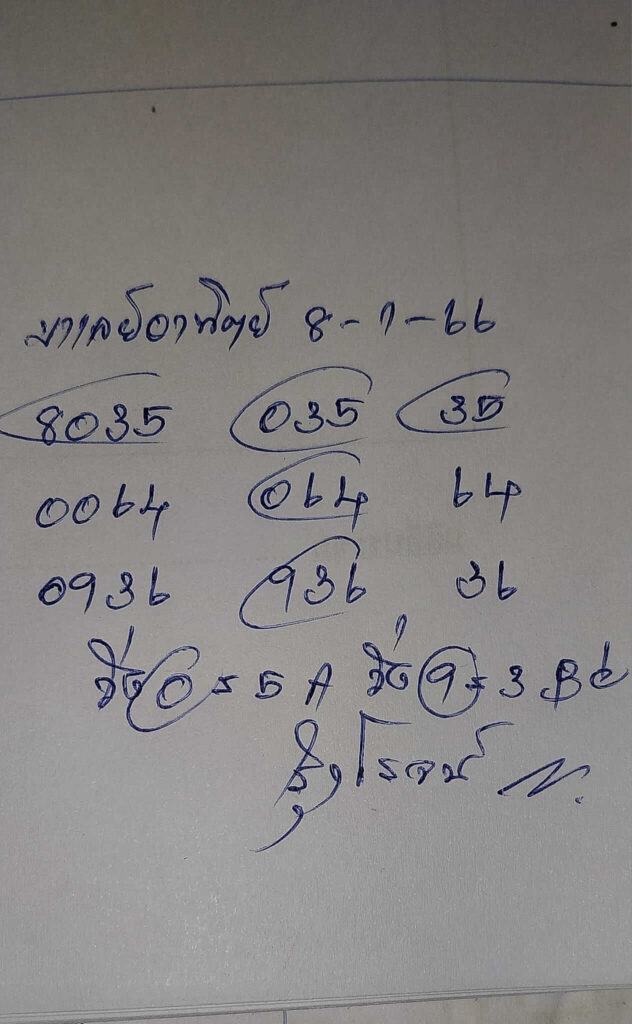 มาเลย์อาทิตย์ 8-1-66
8035 035 35
0064 064 64
0936 936 36
วิ่ง 0 = 5 A วิ่ง 9 = 3 B
รุ่งโรจน์ N.